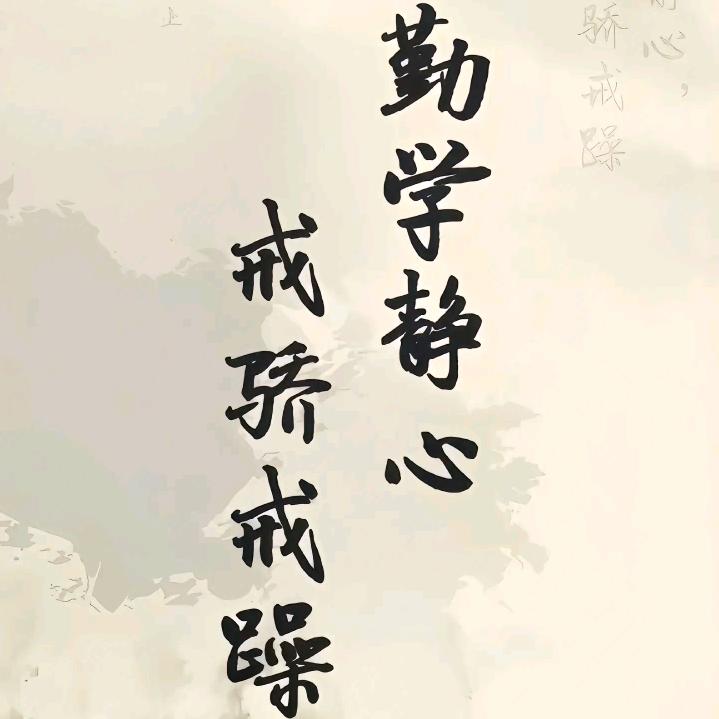 静心，
骄戒躁
勤学静心
戒骄戒躁
上